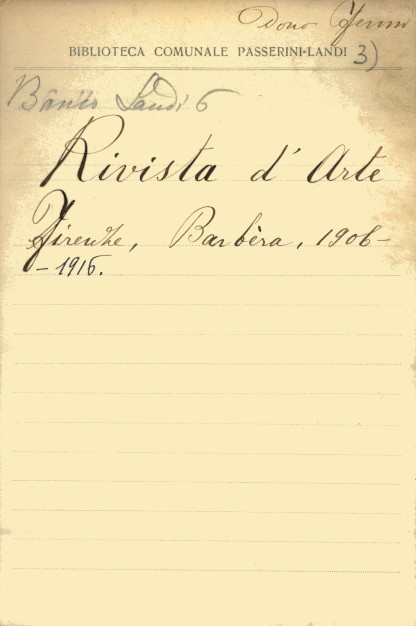 Dono
BIBLIOTECA COMUNALE PASSERINI-LANDI 3)
Landi 6
Rivista d'Arte
Firenze, Barbèra, 1906-
-1916.